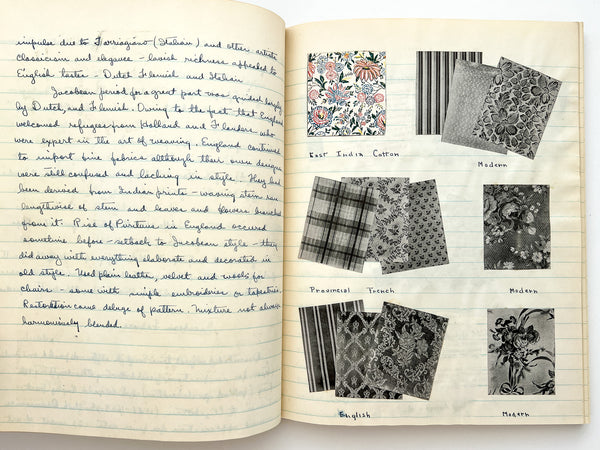 impulse due to Torrigiano (Italian) and other artists
classicism and elegance - lavish richness appealed to
English tastes - Dutch Flemish and Italian
Jacobean period for a great part was guided largely
by Dutch, and Flemish. Owing to the fact that England
welcomed refugees from Holland and Flanders who
were expert in the art of weaving. England continued
to import fine fabrics although their own designs
were still confused and lacking in style. They had
been derived from Indian prints - waving stem ran
lengthwise of stem and leaves and flowers branched
from it. Rise of Puritans in England occured
sometime before - setback to Jacobean style - they
did away with everything elaborate and decorated in
old style. Used plain leather, velvet and wools for
chairs - some with simple embroideries or tapestries.
Restoration came deluge of pattern. Mixture not always
harmoniously blended.
East India Cotton
Modern
Provincial French
Modern
English
Modern